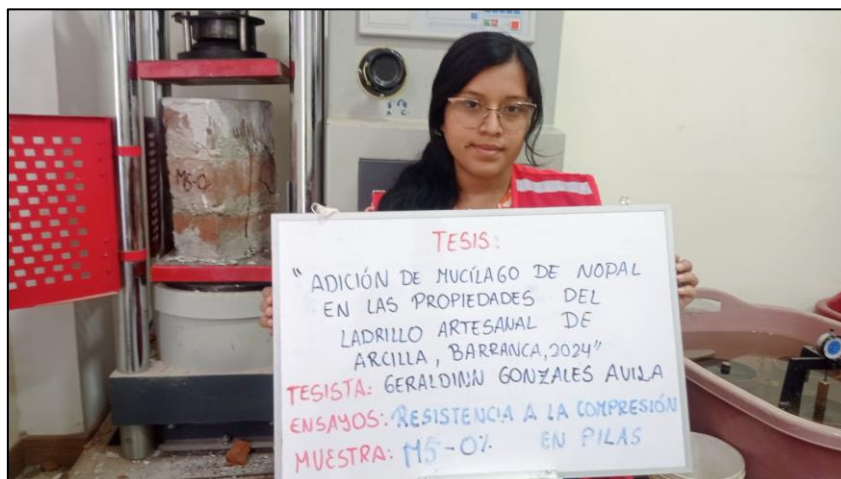 MS-0
TESIS:
" ADICIÓN DE MUCÍLAGO DE NOPAL
EN LAS PROPIEDADES DEL
LADRILLO ARTESANAL DE
ARCILLA, BARRANCA, 2024"
TESISTA: GERALDINN GONZALES AVILA
ENSAYOS: RESISTENCIA A LA COMPRESIÓN
EN PILAS
MUESTRA: MS-0%